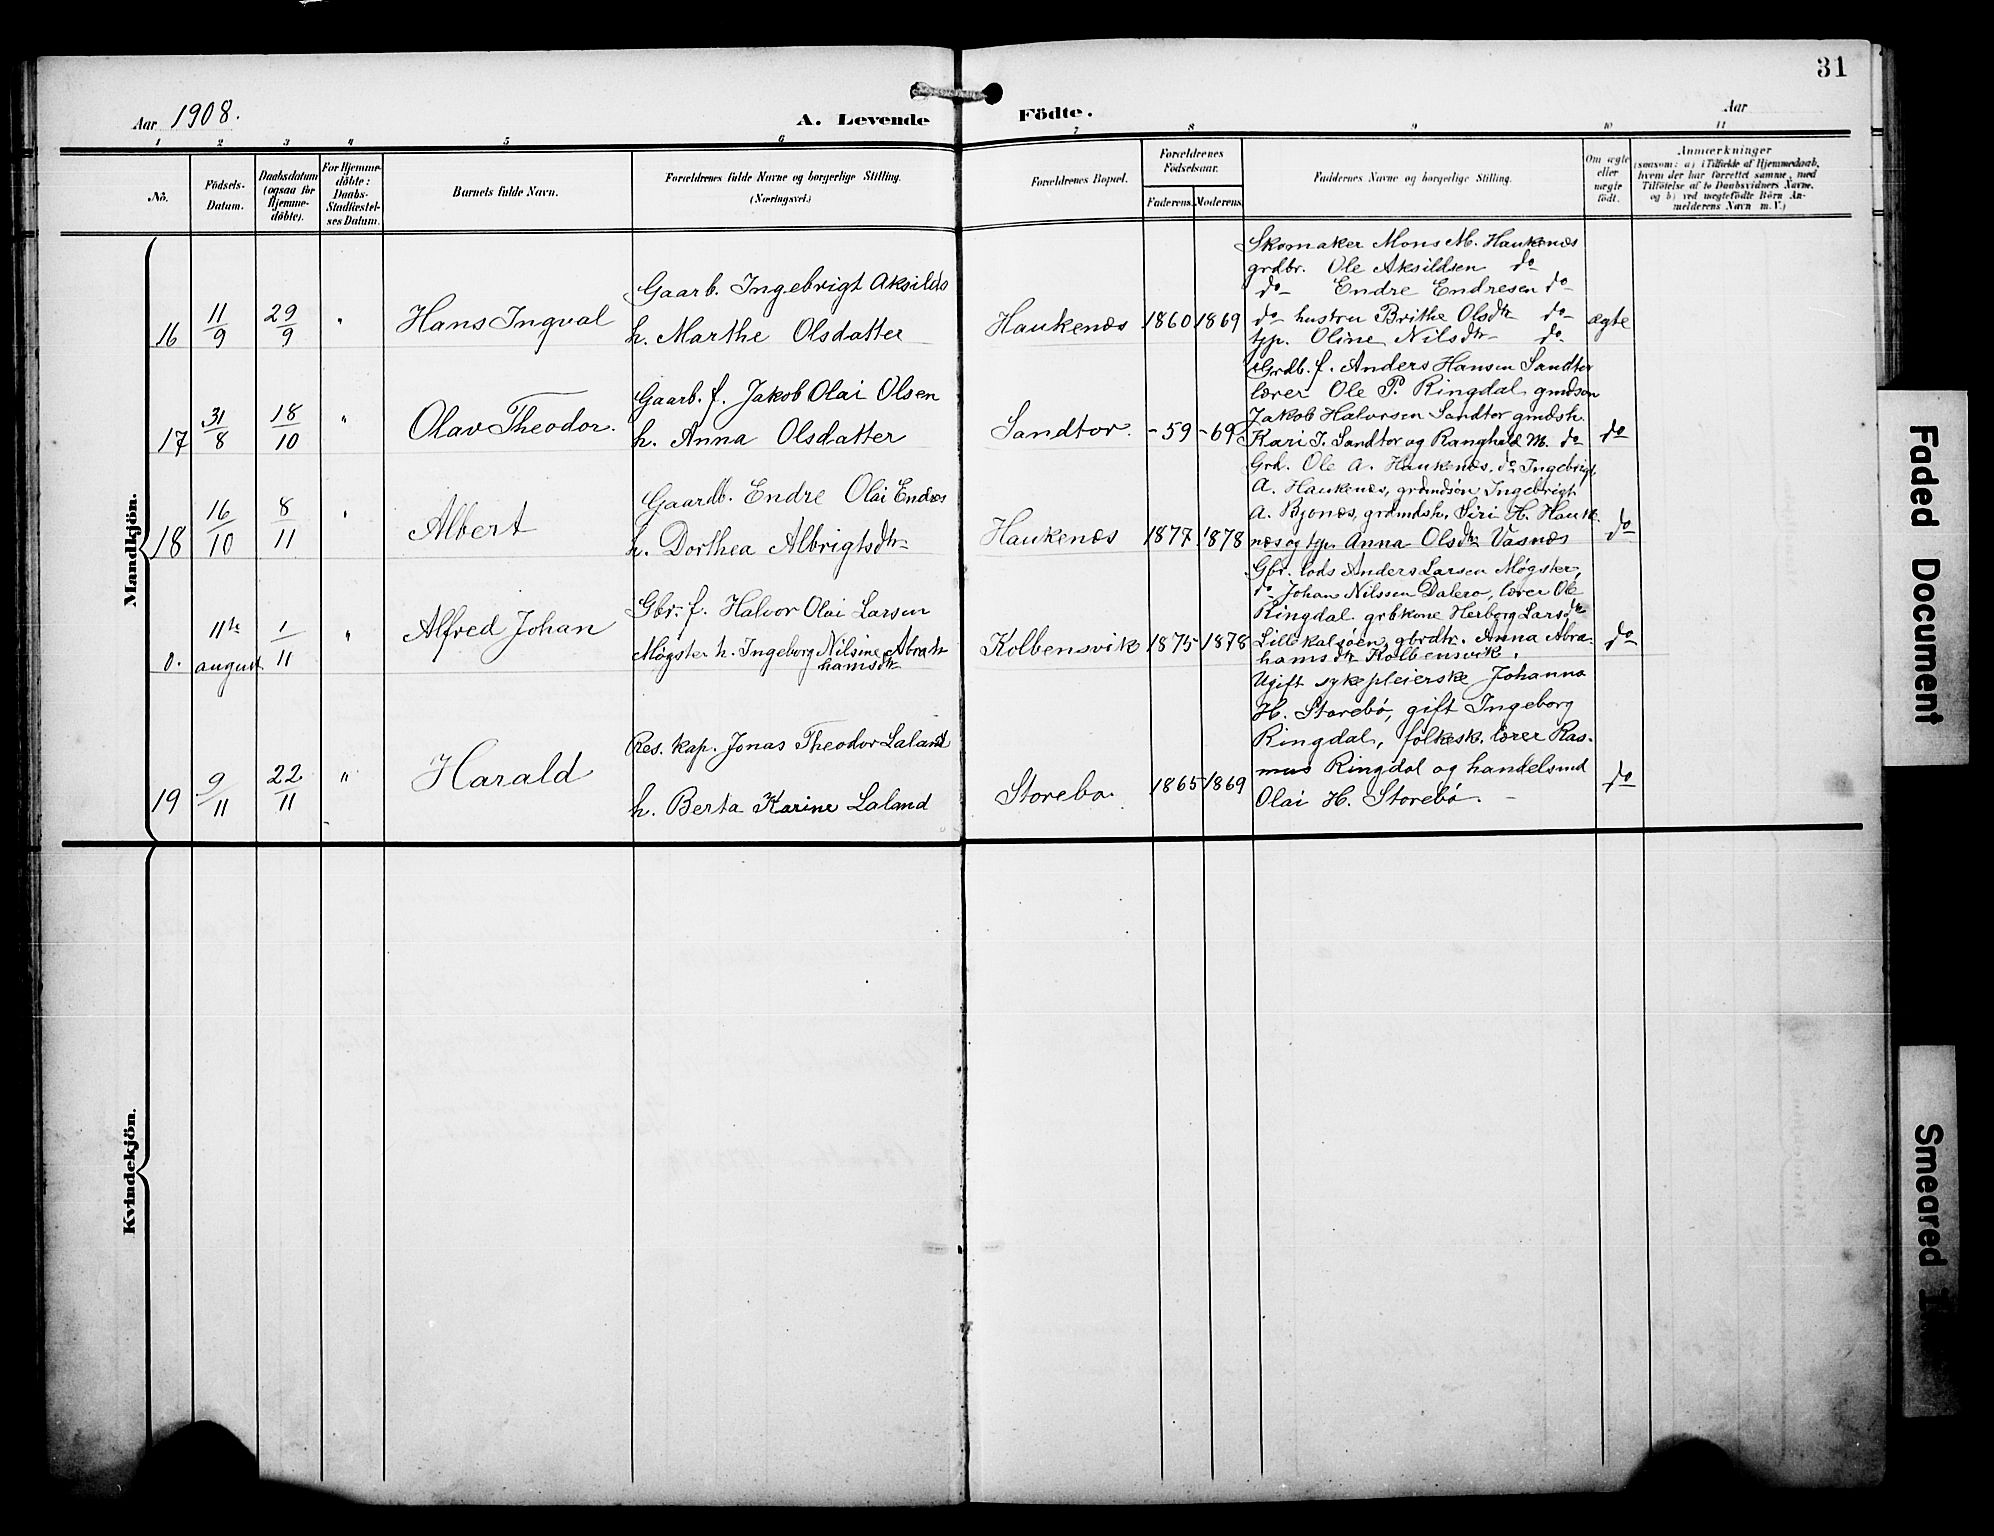 31
Aar 1908.
A. Levende Födte.
Aar
1 2 3 4 5 6 7 8 9 10 11
No.
Födsels-
Datum.
Daabsdatum
(ogsaa for
Hjemme-
döbte).
For Hjemme-
döbte:
Daabs-
Stadfæstel-
ses Datum.
Barnets fulde Navn.
Forældrenes fulde Navne og borgerlige Stilling.
(Næringsvei.)
Forældrenes Bopæl.
Forældrenes
Födselsaar.
Faderens. Moderens.
Faddernes Navne og borgerlige Stilling.
Om ægte
eller
uægte
født.
Anmærkninger
(saasom: a) i Tilfælde af Hjemmedaab,
hvem der har forrettet samme, med
Tilföielse af to Daabsvidners Navne,
og b) ved uægtefödte Börn An-
melderens Navn m. V.)
Mandkjön.
16
11/9
29/9
"
Hans Ingval
Gaarb. Ingebrigt Aksilds
h. Marthe Olsdatter
Haukenæs
1860
1869
Skomaker Mons M. Haukenæs
grdbr. Ole Aksildsen do
do Endre Endresen do
do hustru Brithe Olsdtr do
tjp. Oline Nilsdtr do
ægte
17
31/8
18/10
"
Olav Theodor.
Gaarb. f. Jakob Olai Olsen
h. Anna Olsdatter
Sandtor.
-59
-69
Grdb. f. Anders Hansen Sandtor
lærer Ole P. Ringdal gmdsøn
Jakob Halvorsen Sandtor gmdsh.
Kari J. Sandtor og Ranghild M. do
do
18
16/10
8/11
"
Albert
Gaardb. Endre Olai Endres
h. Dorthea Albrigtsdtr
Haukenæs
1877
1878
Grd. Ole A. Haukenæs, do Ingebrigt
A. Haukenæs, grdmdsøn Ingebrigt
A. Bjonæs, grdmdsh. Siri H. Hauke
næs og tjp. Anna Olsdtr Vasnæs
do
0.
11te
august
1/11
"
Alfred Johan
Gbr. f. Halvor Olai Larsen
Møgster h. Ingeborg Nilsine Abra
hamsdtr
Kolbensvik
1875
1878
Gbr. lods Anders Larsen Møgster,
do Johan Nilssen Dalerø, lærer Ole
Ringdal grbkone Herborg Larsdtr
Lillekalsøen, gbrdtr. Anna Abra
hamsdtr Kolbensvik.
do
19
9/11
22/11
"
Harald
Res. kap. Jonas Theodor Laland
h. Berta Karine Laland
Storebø.
1865
1869
Ugift sykepleierske Johanna
H. Storebø, gift Ingeborg
Ringdal, folkesk. lærer Ras-
mus Ringdal og handelsmd
Olai H. Storebø.
do
Kvindekjön.
Faded Document
Smeared